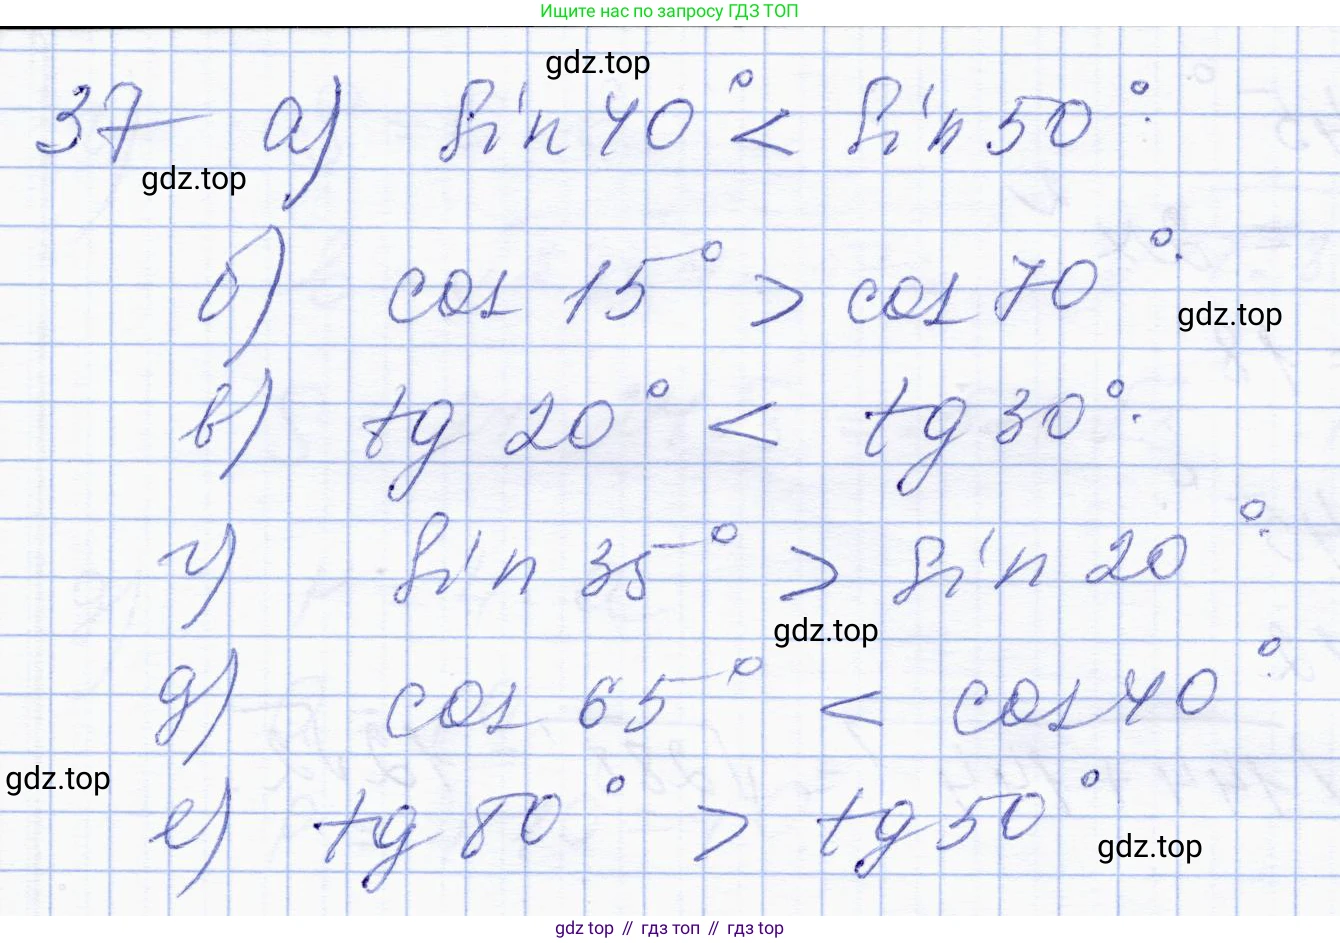 Ищите нас по запросу ГДЗ ТОП
gdz.top
37 а) sin 40° < sin 50°.
gdz.top
б) cos 15° > cos 70°.
gdz.top
в) tg 20° < tg 30°.
г) sin 35° > sin 20°.
gdz.top
д) cos 65° < cos 40°.
gdz.top
е) tg 80° > tg 50°.
gdz.top
gdz top // гдз топ // гдз top